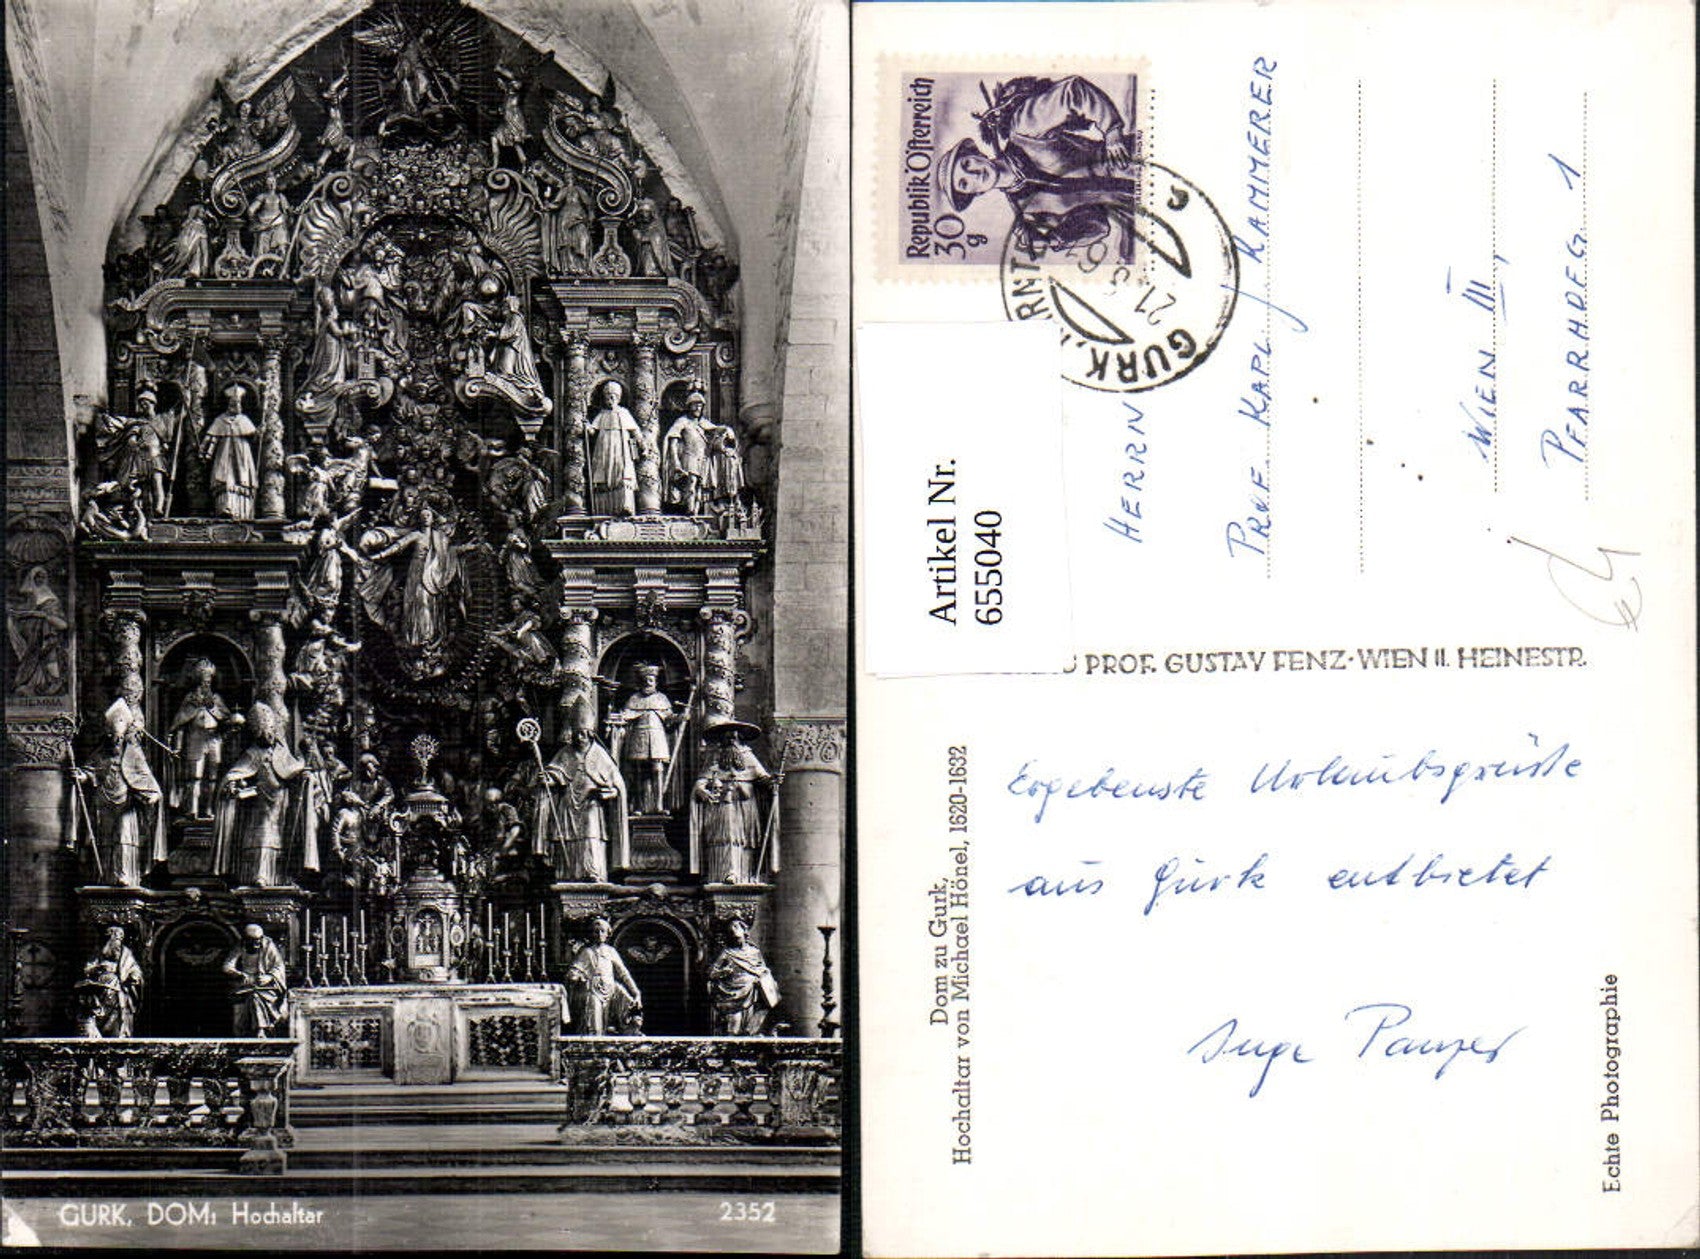 GURK, DOM: Hochaltar
2352
H. HEMMA
Republik Österreich
30
g
GURK,
21
Artikel Nr.
655040
HERRN
PROF. KAPL. J KAMMERER
WIEN III,
PFARRHOFG. 1
PROF. GUSTAV FENZ·WIEN II. HEINESTR.
Dom zu Gurk,
Hochaltar von Michael Hönel, 1620-1632
Ergebenste Urlaubsgrüße
aus Gurk entbietet
Inge Panzer
Echte Photographie